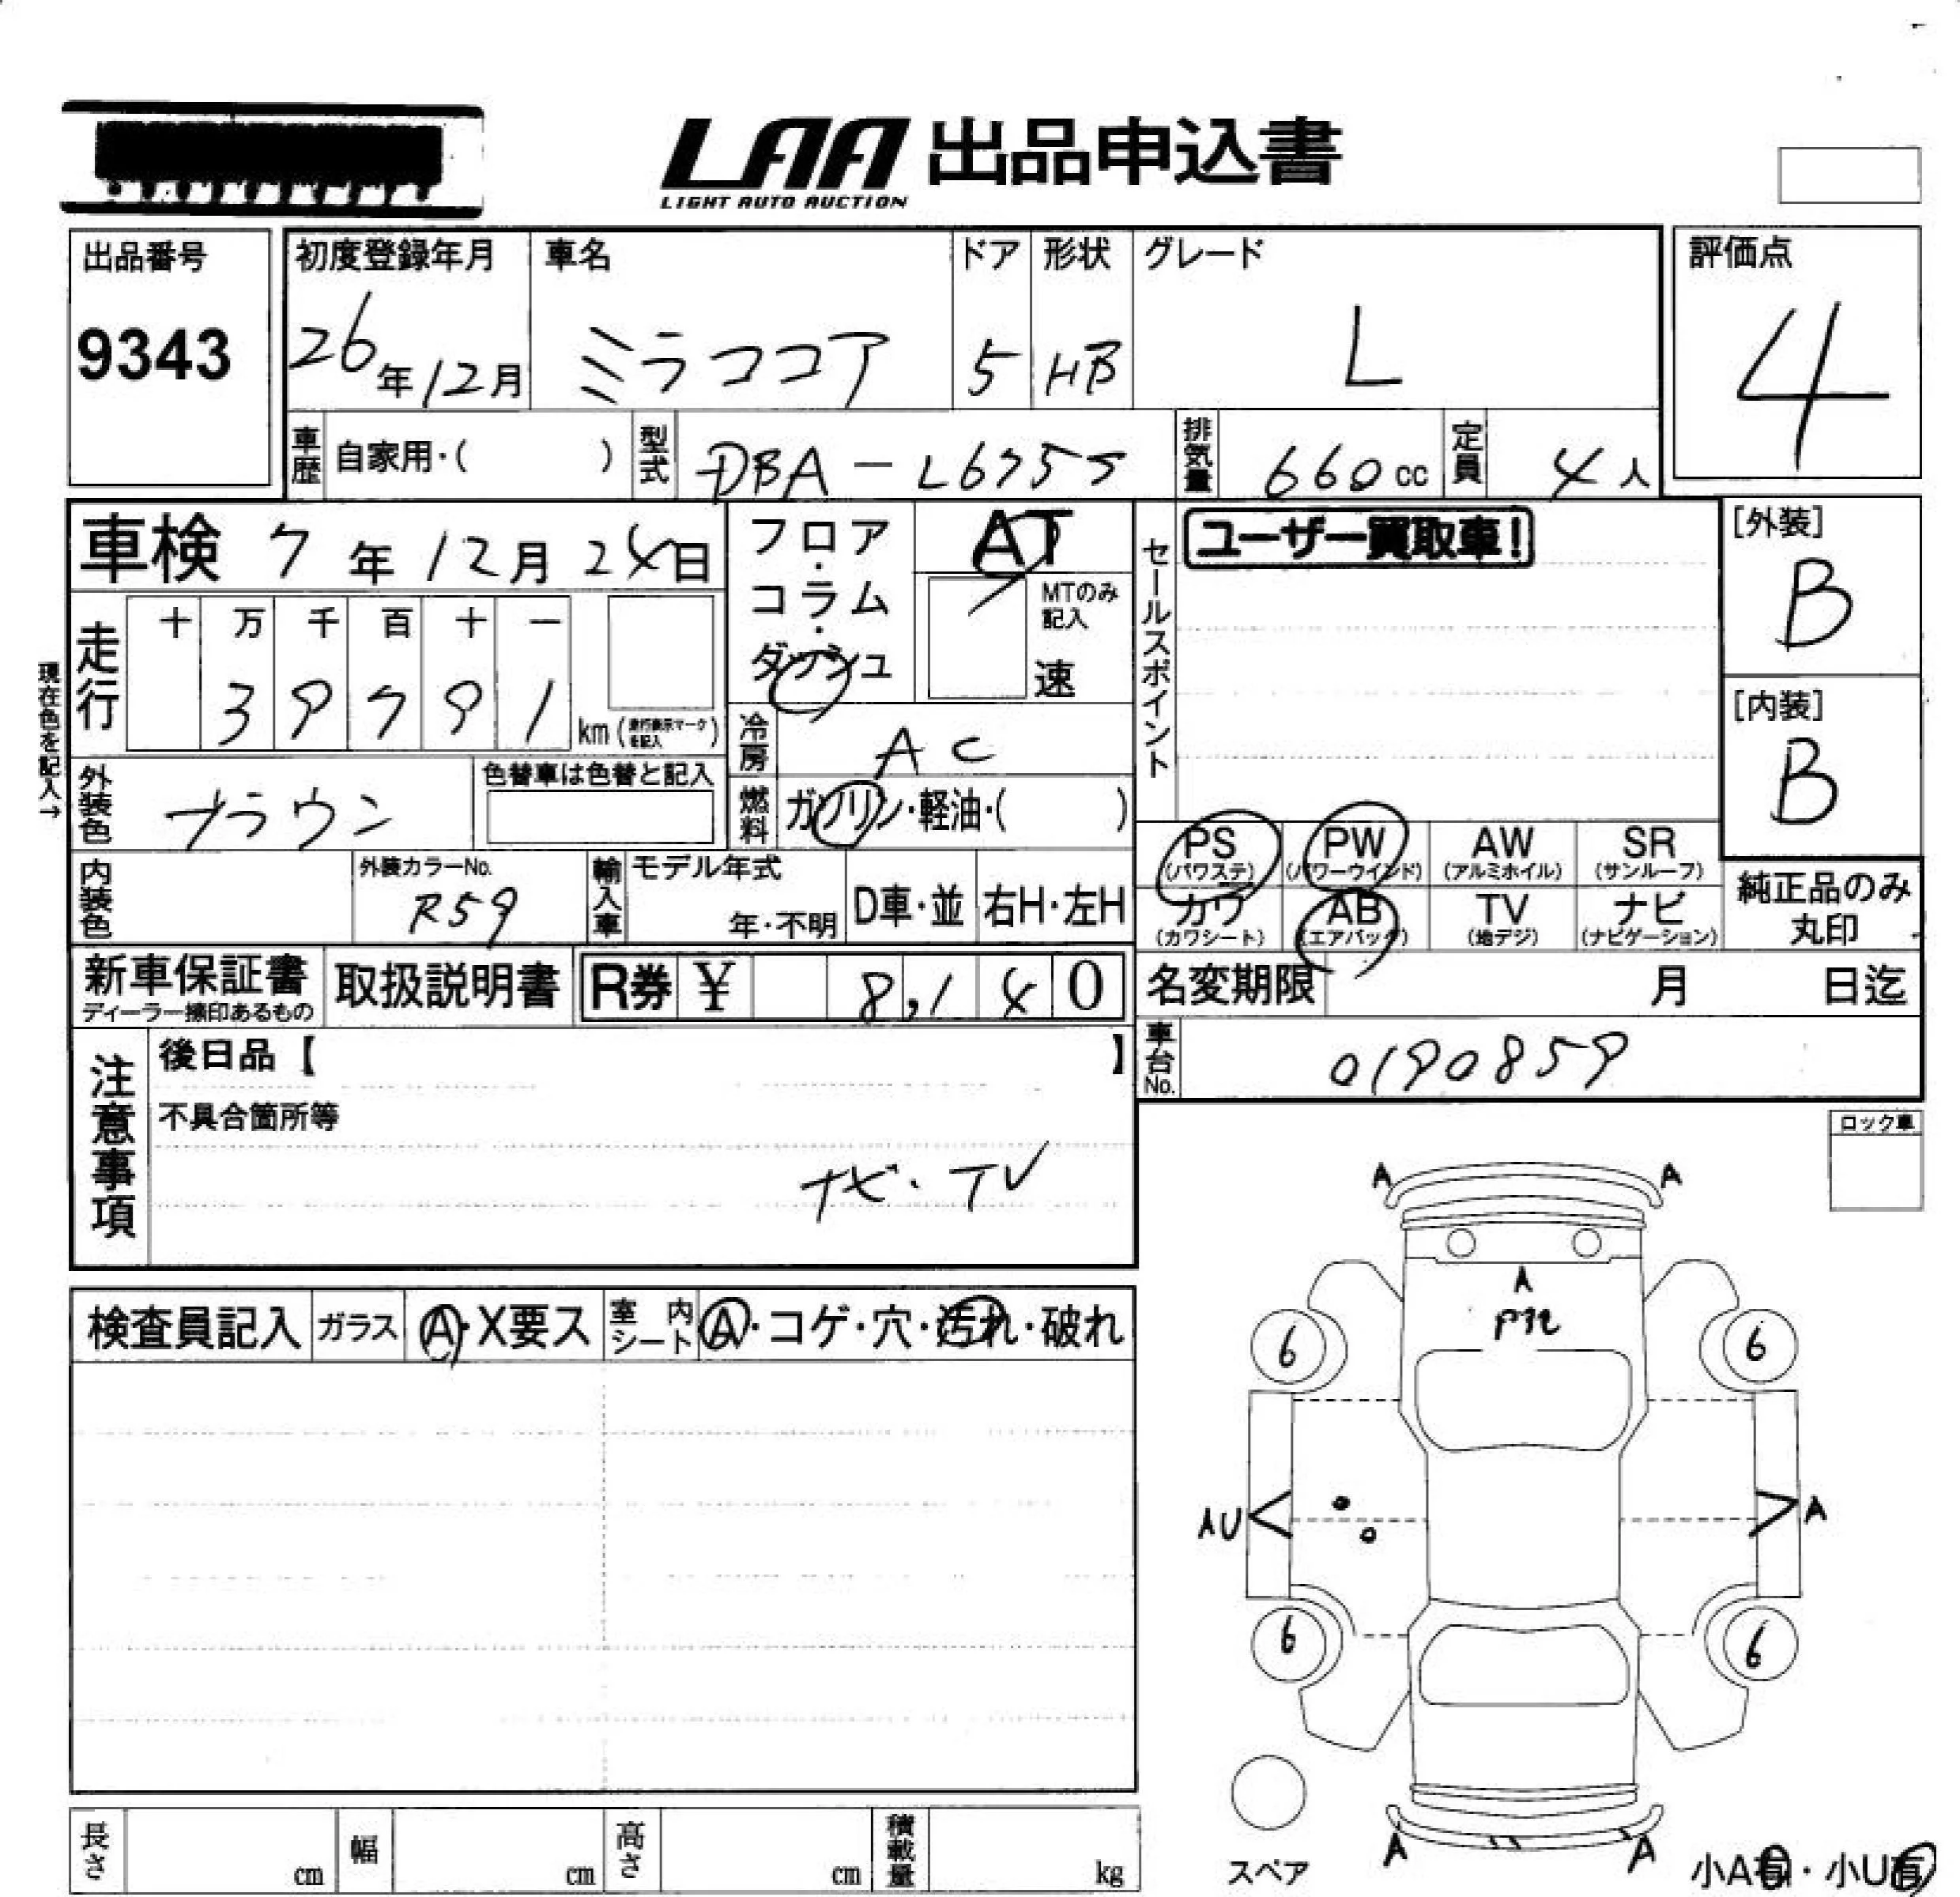 LAA 出品申込書
LIGHT AUTO AUCTION
出品番号
9343
初度登録年月
26年12月
車名
ミラココア
ドア
5
形状
HB
グレード
L
評価点
4
車歴 自家用・( )
型式 DBA-L675S
排気量 660cc
定員 4人
車検 7年12月24日
フロア・コラム・ダッシュ
AT
MTのみ記入
速
セールスポイント
ユーザー買取車!
[外装]
B
[内装]
B
現在色を記入→
走行
十 万 千 百 十 一
3 9 7 9 1 km (走行表示マークを記入)
冷房 AC
外装色 ブラウン
色替車は色替と記入
燃料 ガソリン・軽油・( )
内装色
外装カラーNo.
R59
輸入車
モデル年式
年・不明
D車・並
右H・左H
PS (パワステ)
PW (パワーウインド)
AW (アルミホイル)
SR (サンルーフ)
カワ (カワシート)
AB (エアバック)
TV (地デジ)
ナビ (ナビゲーション)
純正品のみ丸印
新車保証書
ディーラー捺印あるもの
取扱説明書
R券 ¥ 8,140
名変期限 月 日迄
車台No. 0190859
注意事項
後日品【 】
不具合箇所等
ナビ・TV
ロック車
検査員記入
ガラス A・X要ス
室内シート A・コゲ・穴・汚れ・破れ
A A
A
6 6
AU A
6 6
A A
スペア
小A有・小U有
長さ cm
幅 cm
高さ cm
積載量 kg